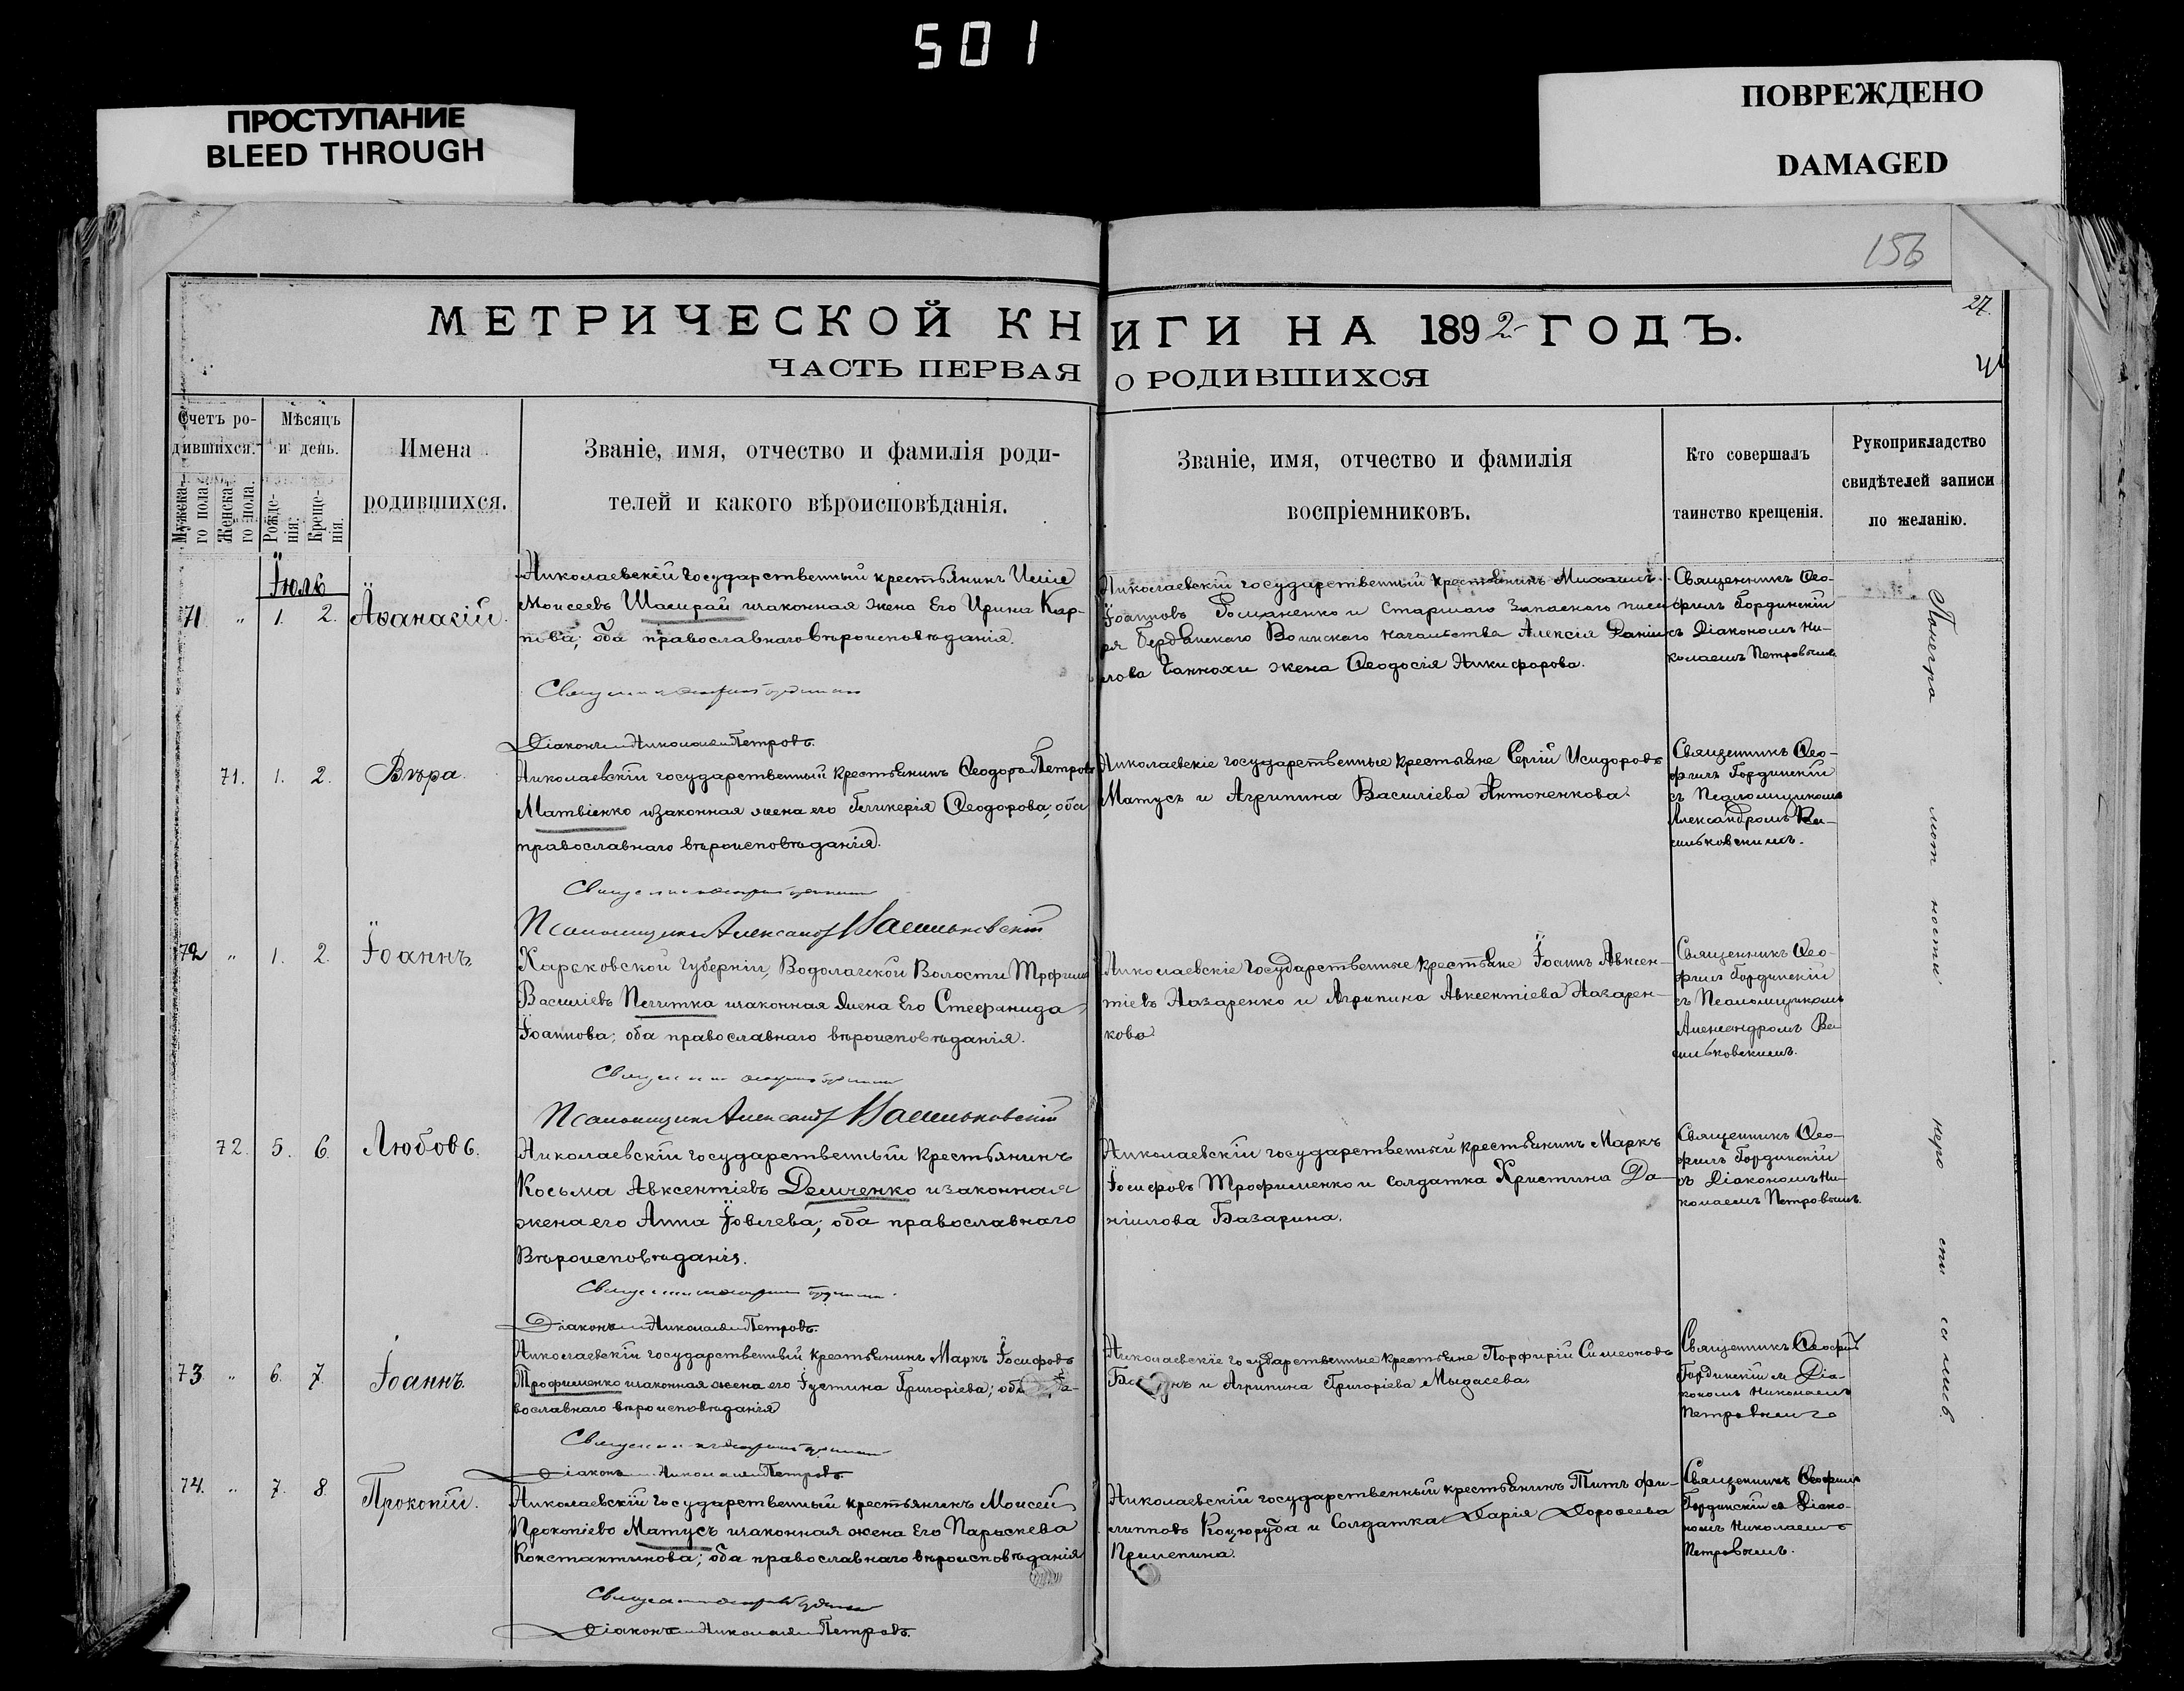 501
ПРОСТУПАНИЕ
BLEED THROUGH
ПОВРЕЖДЕНО
DAMAGED
156
27.
МЕТРИЧЕСКОЙ КНИГИ НА 1892 ГОДЪ.
ЧАСТЬ ПЕРВАЯ О РОДИВШИХСЯ
Счетъ ро-
дившихся.
Мужеска-
го пола.
Женска-
го пола.
Мѣсяцъ
и день.
Рожде-
нія.
Креще-
нія.
Имена
родившихся.
Званіе, имя, отчество и фамилія роди-
телей и какого вѣроисповѣданія.
Званіе, имя, отчество и фамилія
воспріемниковъ.
Кто совершалъ
таинство крещенія.
Рукоприкладство
свидѣтелей записи
по желанію.
Іюль
71 " 1. 2. Аѳанасій.
Николаевскій государственный крестьянинъ
Моисеевъ Шамрай и законная жена его Ирина Кар-
пова; оба православнаго вѣроисповѣданія.
Діаконъ Николай Петровъ.
Николаевскій государственный крестьянинъ Михаилъ
Іоанновъ и Старшаго Запаснаго писа-
ря Бердянскаго Воинскаго Алексія Даніи-
лова жена Ѳеодосія Никифорова.
Священникъ Ѳео-
филъ Гординскій
съ Діакономъ Ни-
колаемъ Петровымъ
71. 1. 2. Вѣра.
Николаевскій государственный крестьянинъ Ѳеодоръ Петровъ
Матвіенко и законная жена его Гликерія Ѳеодорова; оба
православнаго вѣроисповѣданія.
Псаломщикъ Александръ Васильковскій
Николаевскіе государственные крестьяне Сергій Исидоровъ
Матусъ и Агрипина Василіева Антоненкова.
Священникъ Ѳео-
филъ Гординскій
съ Псаломщикомъ
Александромъ Ва-
сильковскимъ.
72 " 1. 2. Іоаннъ
Харьковской губерніи, Водолагской Волости Трофимъ
Василіевъ и законная жена его Стефанида
Іоаннова; оба православнаго вѣроисповѣданія.
Псаломщикъ Александръ Васильковскій
Николаевскіе государственные крестьяне Іоаннъ Авксен-
тіевъ Назаренко и Агрипина Авксентіева Назарен-
кова.
Священникъ Ѳео-
филъ Гординскій
съ Псаломщикомъ
Александромъ Ва-
сильковскимъ.
72. 5. 6. Любовь.
Николаевскій государственный крестьянинъ
Косьма Авксентіевъ Демченко и законная
жена его Анна Іовлева; оба православнаго
вѣроисповѣданія.
Діаконъ Николай Петровъ.
Николаевскій государственный крестьянинъ Маркъ
Іосифовъ Трофименко и солдатка Христина Да-
ніилова Базарина.
Священникъ Ѳео-
филъ Гординскій
съ Діакономъ Ни-
колаемъ Петровымъ.
73. " 6. 7. Іоаннъ.
Николаевскій государственный крестьянинъ Маркъ Іосифовъ
Трофименко и законная жена его Іустина Григоріева; оба
вославнаго вѣроисповѣданія
Діаконъ Николай Петровъ.
Николаевскіе государственные крестьяне Порфирій Симеоновъ
и Агрипина Григоріева
Священникъ Ѳеофилъ
Гординскій съ Діа-
кономъ Николаемъ
Петровымъ
74. " 7. 8. Прокопій.
Николаевскій государственный крестьянинъ Моисей
Прокопіевъ Матусъ и законная жена его Параскева
Константинова; оба православнаго вѣроисповѣданія
Діаконъ Николай Петровъ.
Николаевскій государственный крестьянинъ Титъ Фи-
липповъ Коцюруба и Солдатка Дарія Дороѳеева
Прилепина.
Священникъ Ѳеофилъ
Гординскій съ Діако-
номъ Николаемъ
Петровымъ.